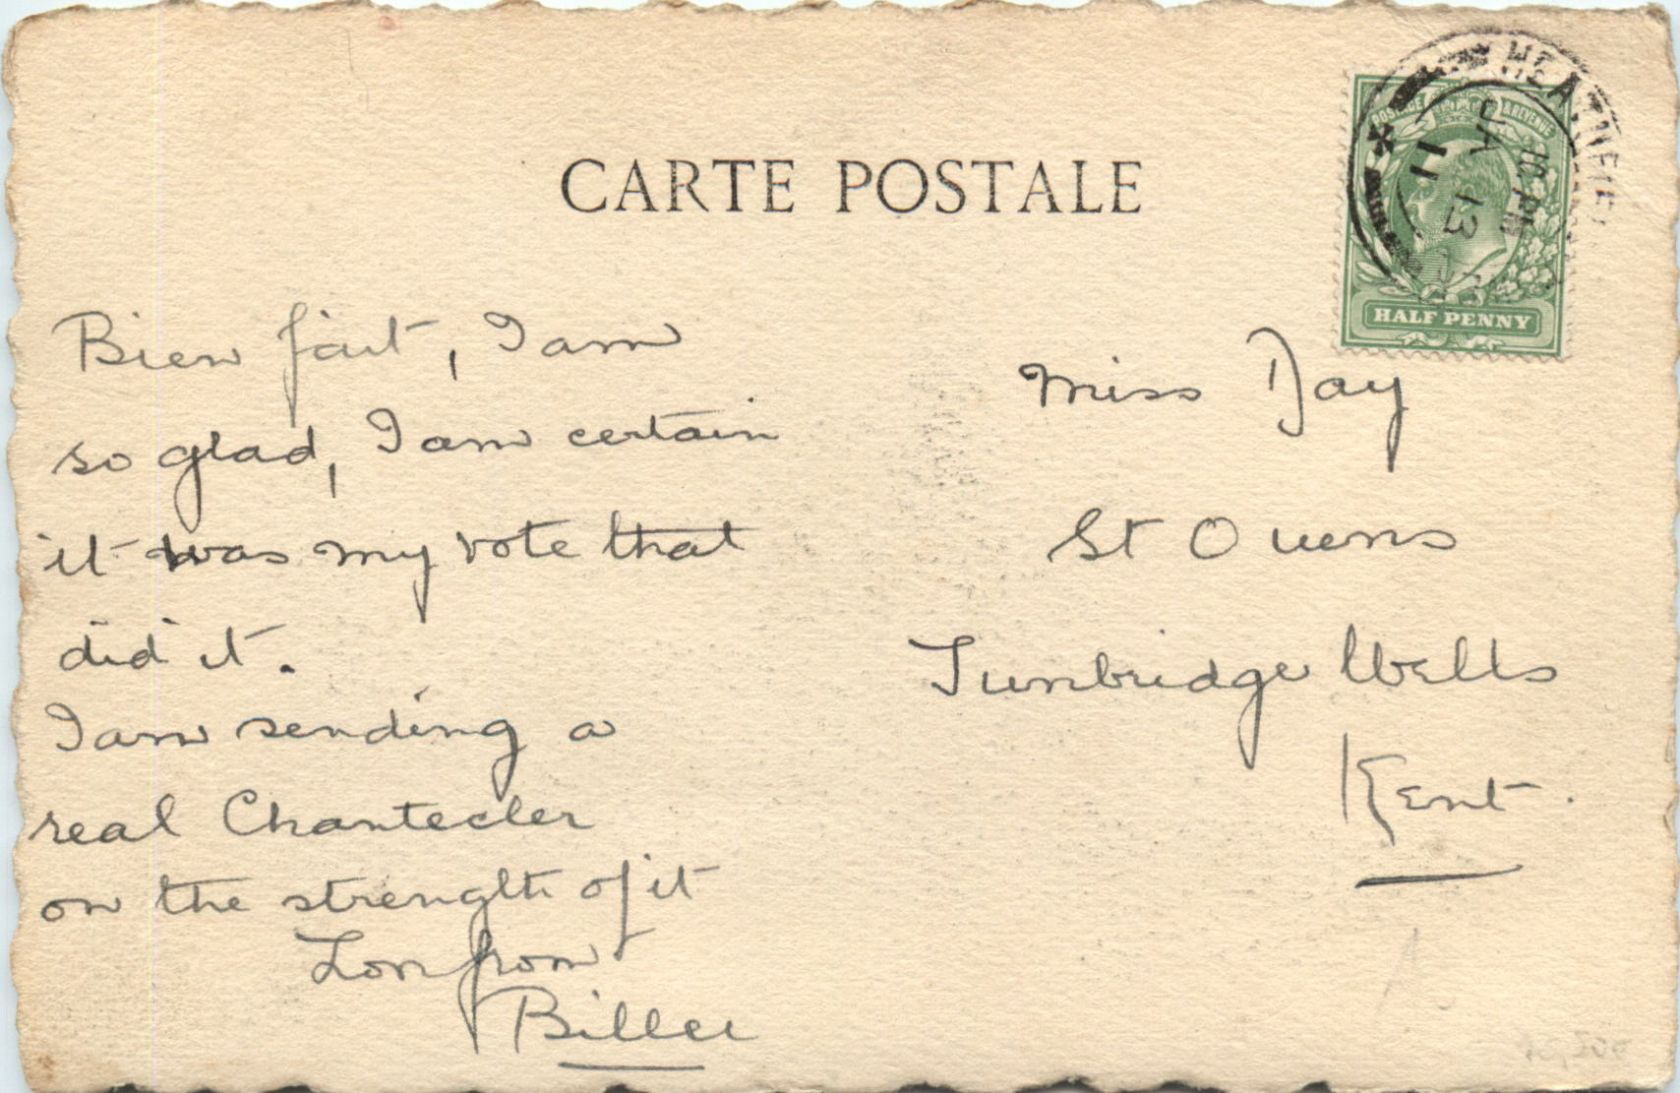 CARTE POSTALE
POSTAGE & REVENUE
HALF PENNY
10 PM
JA 13
11
Bien fait, I am
so glad, I am certain
it was my vote that
did it.
I am sending a
real Chantecler
on the strength of it
from
Billee
Miss Day
St Owens
Tunbridge Wells
Kent.